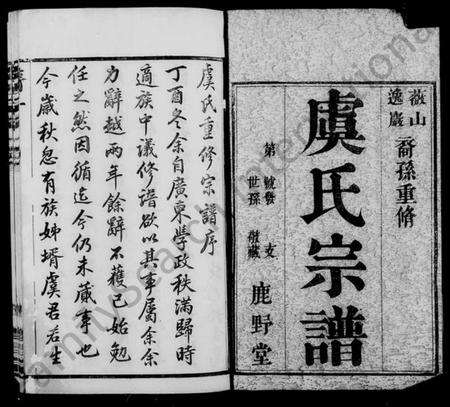 㳺山
逸巖
裔孫重脩
虞氏宗譜
第 號發 支
世孫 敬藏
鹿野堂
虞氏重修宗譜序
丁酉冬余自廣東學政秩滿歸時
適族中議修譜欲以其事屬余余
力辭越兩年餘辭不獲已始勉
任之然因循迄今仍未蕆事也
今歲秋忽有族姊壻虞君若生
FamilySearch International